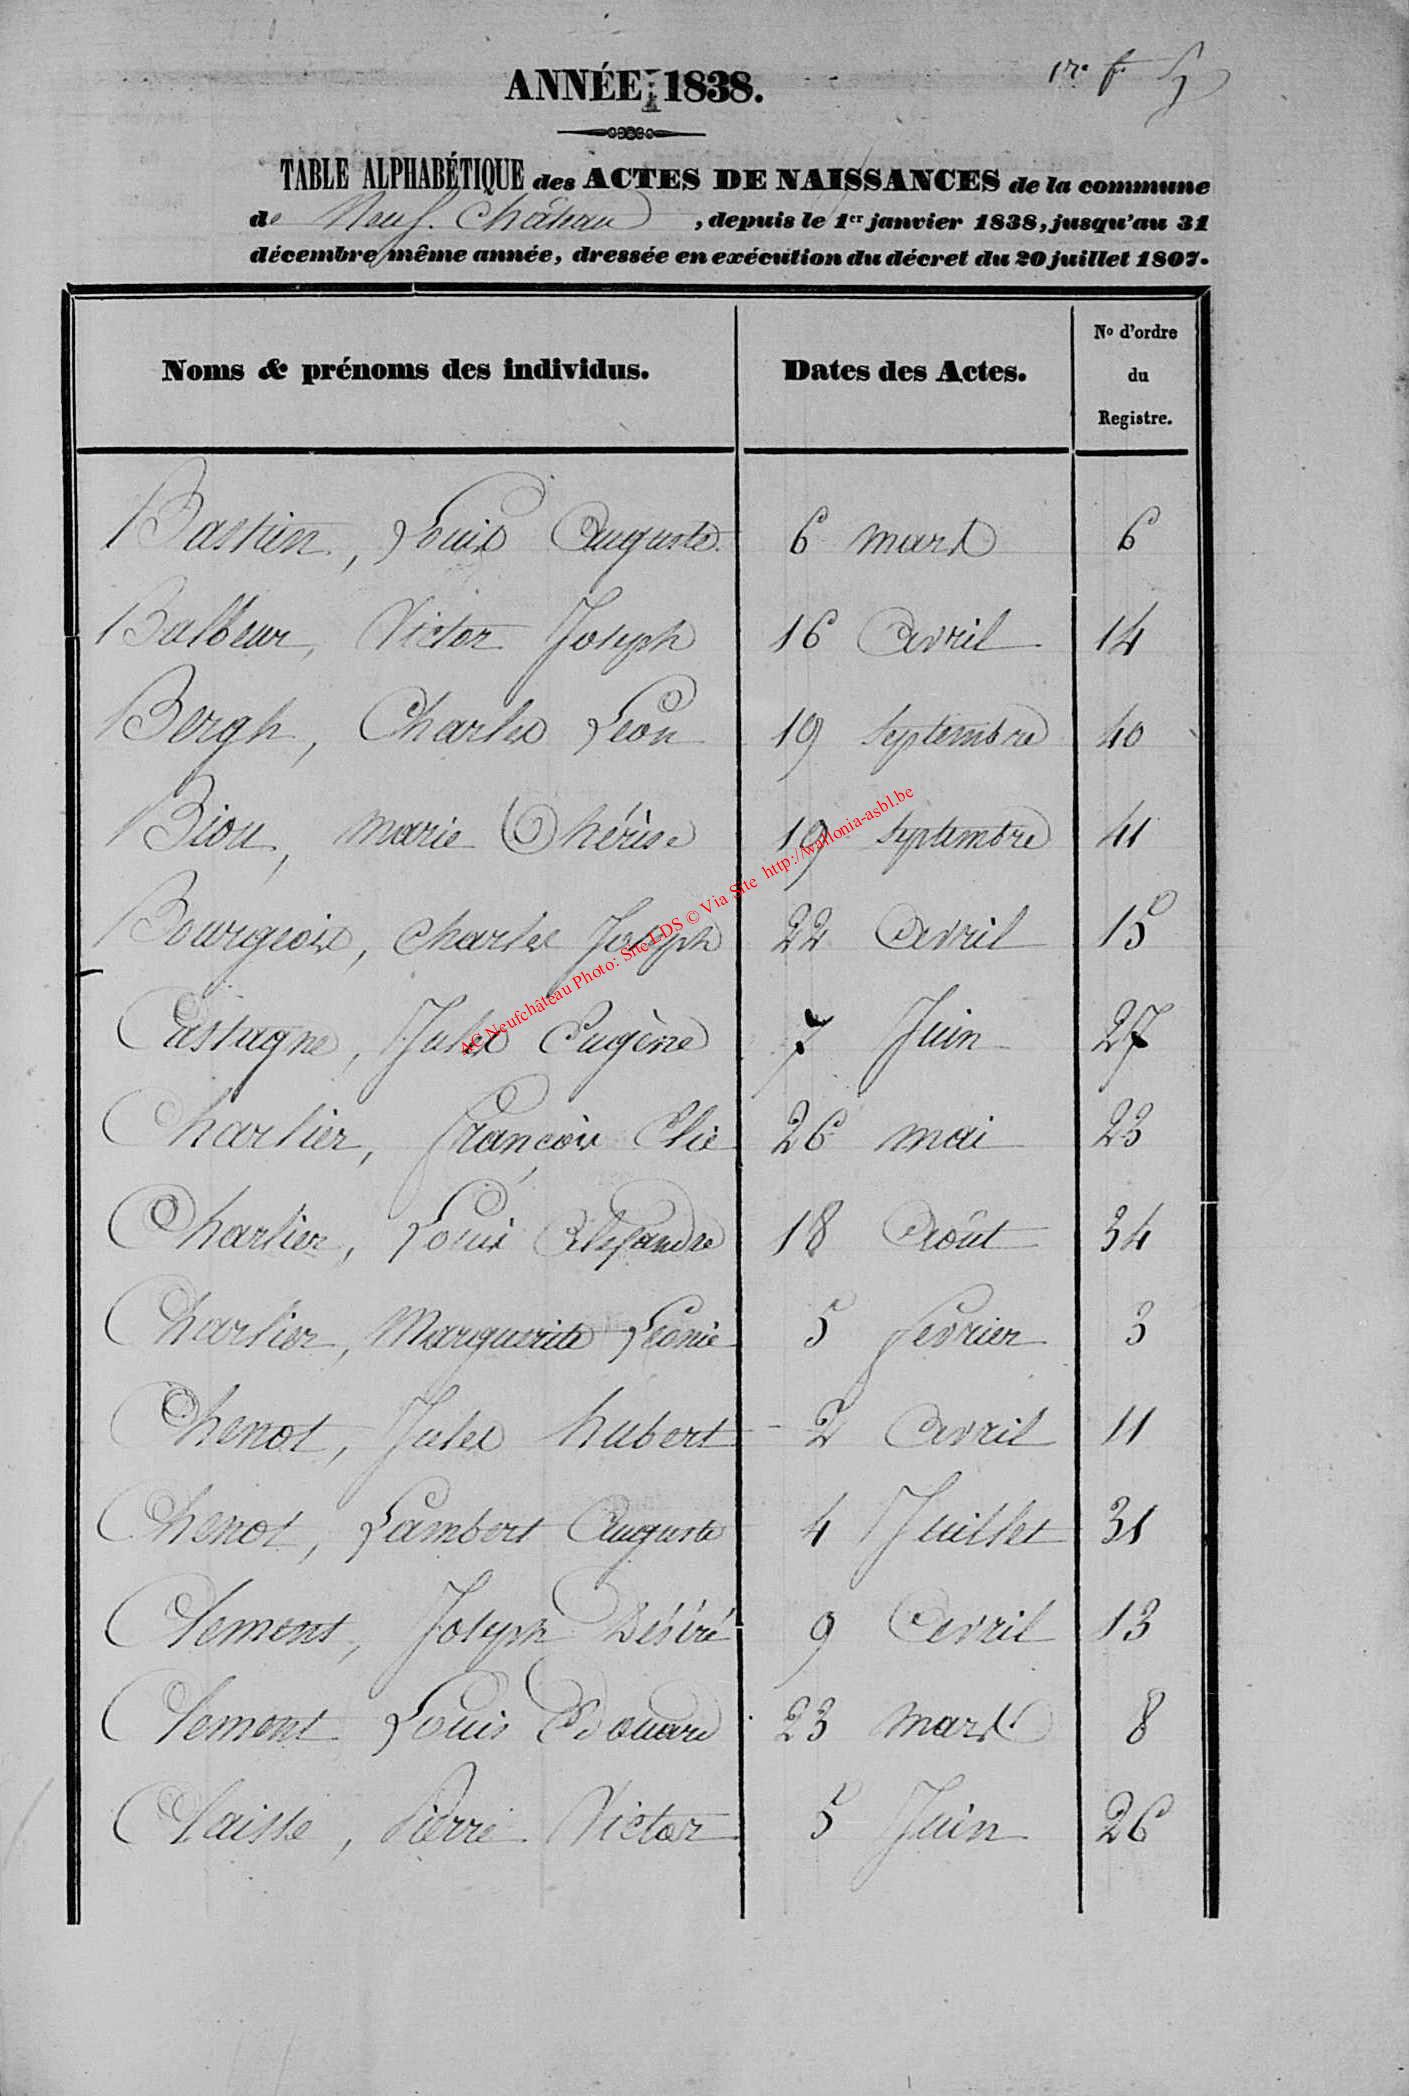 ANNÉE 1838.
1re f.
TABLE ALPHABÉTIQUE des ACTES DE NAISSANCES de la commune
de Neuf-Château, depuis le 1er janvier 1838, jusqu'au 31
décembre même année, dressée en exécution du décret du 20 juillet 1807.
Noms & prénoms des individus. Dates des Actes. No d'ordre du Registre.
Bastien, Louis Auguste 6 mars 6
Balbeur, Victor Joseph 16 Avril 14
Bergh, Charles Léon 19 septembre 40
Biou, marie Thérèse 19 septembre 41
Bourgeois, Charles Joseph 22 Avril 15
Castagne, Jules Eugène 7 Juin 27
Charlier, François Elie 26 mai 23
Charlier, Louis Alexandre 18 Août 34
Charlier, Marguerite Léonie 5 février 3
Chenot, Jules hubert 2 Avril 11
Chenot, Lambert Auguste 4 Juillet 31
Clement, Joseph Désiré 9 Avril 13
Clement Louis Edouard 23 mars 8
Claisse, Pierre Victor 5 Juin 26
AC Neufchâteau Photo: Site LDS © Via Site http://wallonia-asbl.be